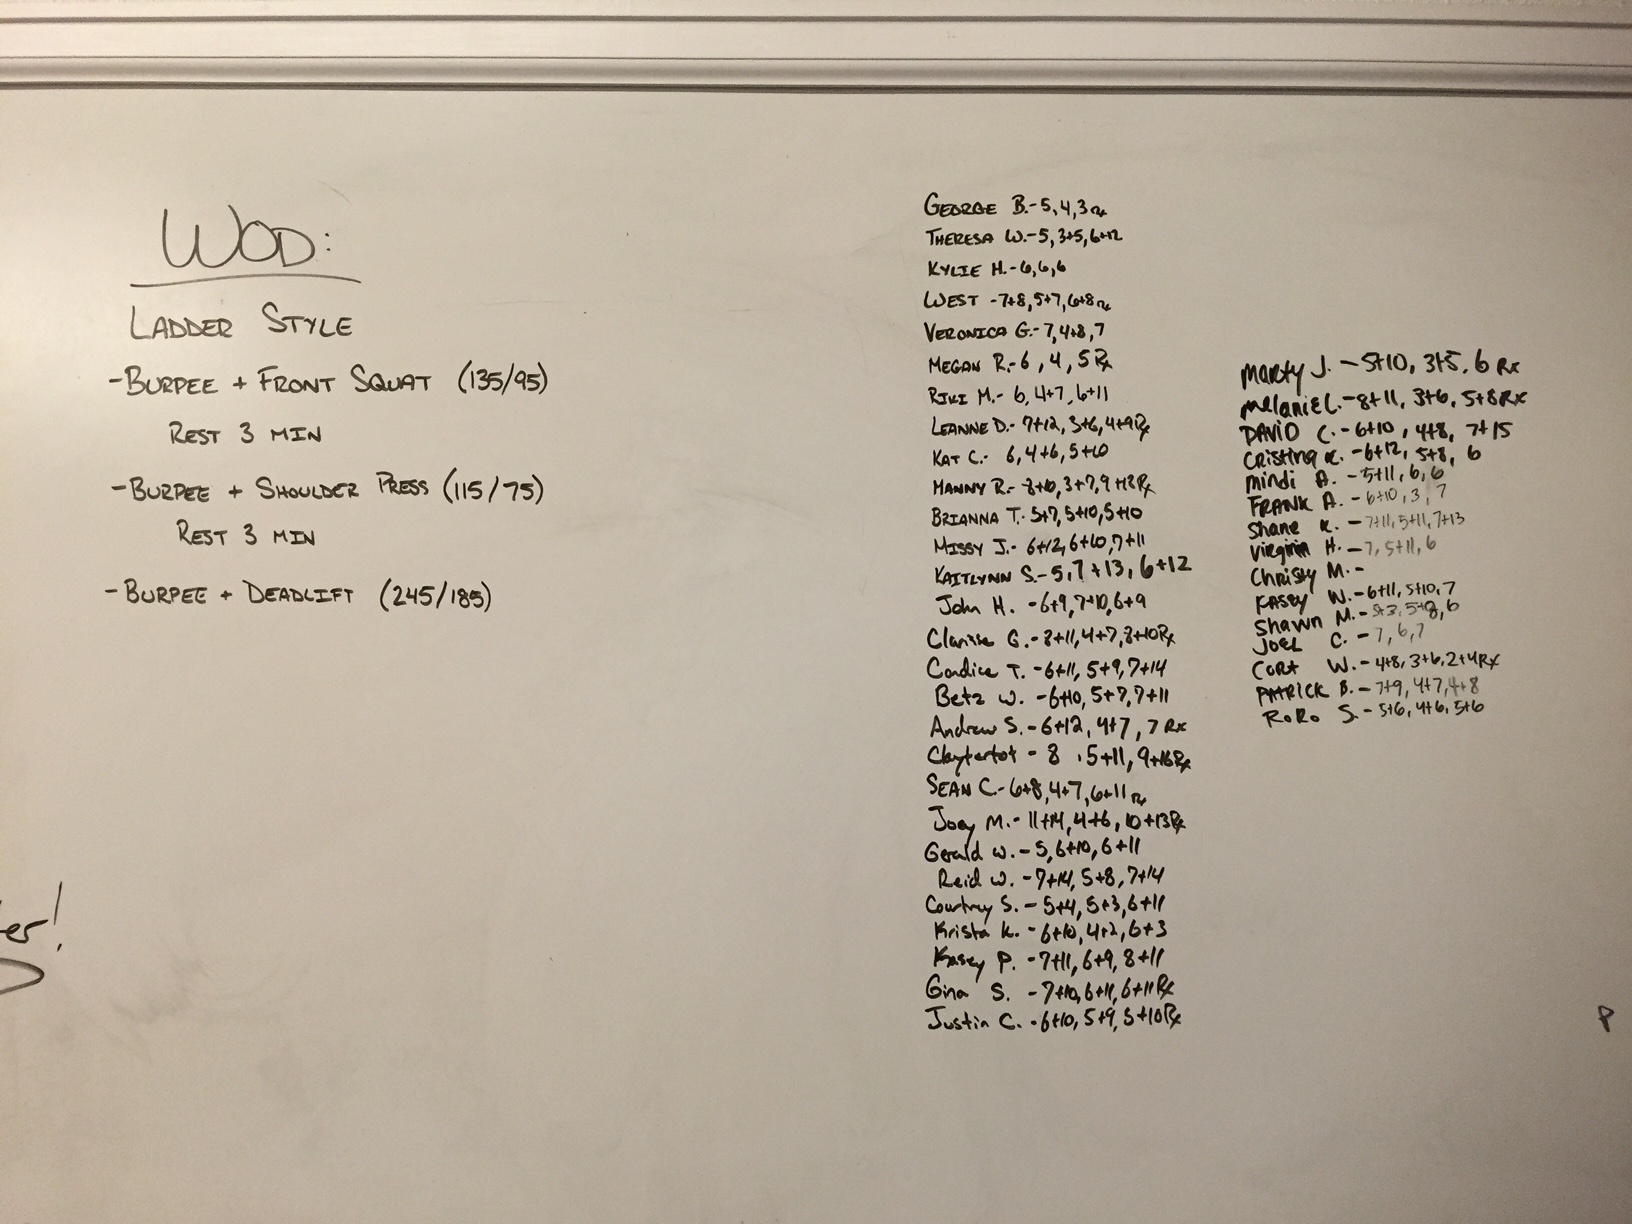 WOD:
LADDER STYLE
-BURPEE + FRONT SQUAT (135/95)
REST 3 MIN
-BURPEE + SHOULDER PRESS (115/75)
REST 3 MIN
-BURPEE + DEADLIFT (245/185)
er!
GEORGE B.-5,4,3 Rx
THERESA W.-5, 3+5, 6+12
KYLIE H.-6,6,6
WEST -7+8, 5+7, 6+8 Rx
VERONICA G.-7, 4+8, 7
MEGAN R.-6, 4, 5 Rx
RIKI M.- 6, 4+7, 6+11
LEANNE D.- 7+12, 3+6, 4+9 Rx
KAT C.- 6, 4+6, 5+10
MANNY R.- 8+10, 3+7, 9+13 Rx
BRIANNA T.- 5+7, 5+10, 5+10
MISSY J.- 6+12, 6+10, 7+11
KAITLYNN S.-5, 7+13, 6+12
John H. -6+9, 7+10, 6+9
Clarisse G.-8+11, 4+7, 8+10 Rx
Candice T. -6+11, 5+9, 7+14
Betz W. -6+10, 5+7, 7+11
Andrew S.-6+12, 4+7, 7 Rx
Claytertot - 8, 5+11, 9+16 Rx
SEAN C.-6+8, 4+7, 6+11 Rx
Joey M.- 11+14, 4+6, 10+13 Rx
Gerald W.-5, 6+10, 6+11
Reid W. -7+14, 5+8, 7+14
Courtney S. - 5+4, 5+3, 6+11
Krista K. -6+10, 4+2, 6+3
Kasey P. -7+11, 6+9, 8+11
Gina S. -7+10, 6+11, 6+11 Rx
Justin C. -6+10, 5+9, 5+10 Rx
Marty J. -5+10, 3+5, 6 Rx
Melanie L.-8+11, 3+6, 5+8 Rx
DAVID C.-6+10, 4+8, 7+15
Cristina K.-6+12, 5+8, 6
Mindi A. -5+11, 6, 6
FRANK A. -6+10, 3, 7
Shane K. -7+11, 5+11, 7+13
Virginia H. -7, 5+11, 6
Christy M.-
KASEY W.-6+11, 5+10, 7
Shawn M.- 5+3, 5+8, 6
JOEL C. -7, 6, 7
CORT W.-4+8, 3+6, 2+4 Rx
PATRICK B.-7+9, 4+7, 4+8
RoRo S.-5+6, 4+6, 5+6
P